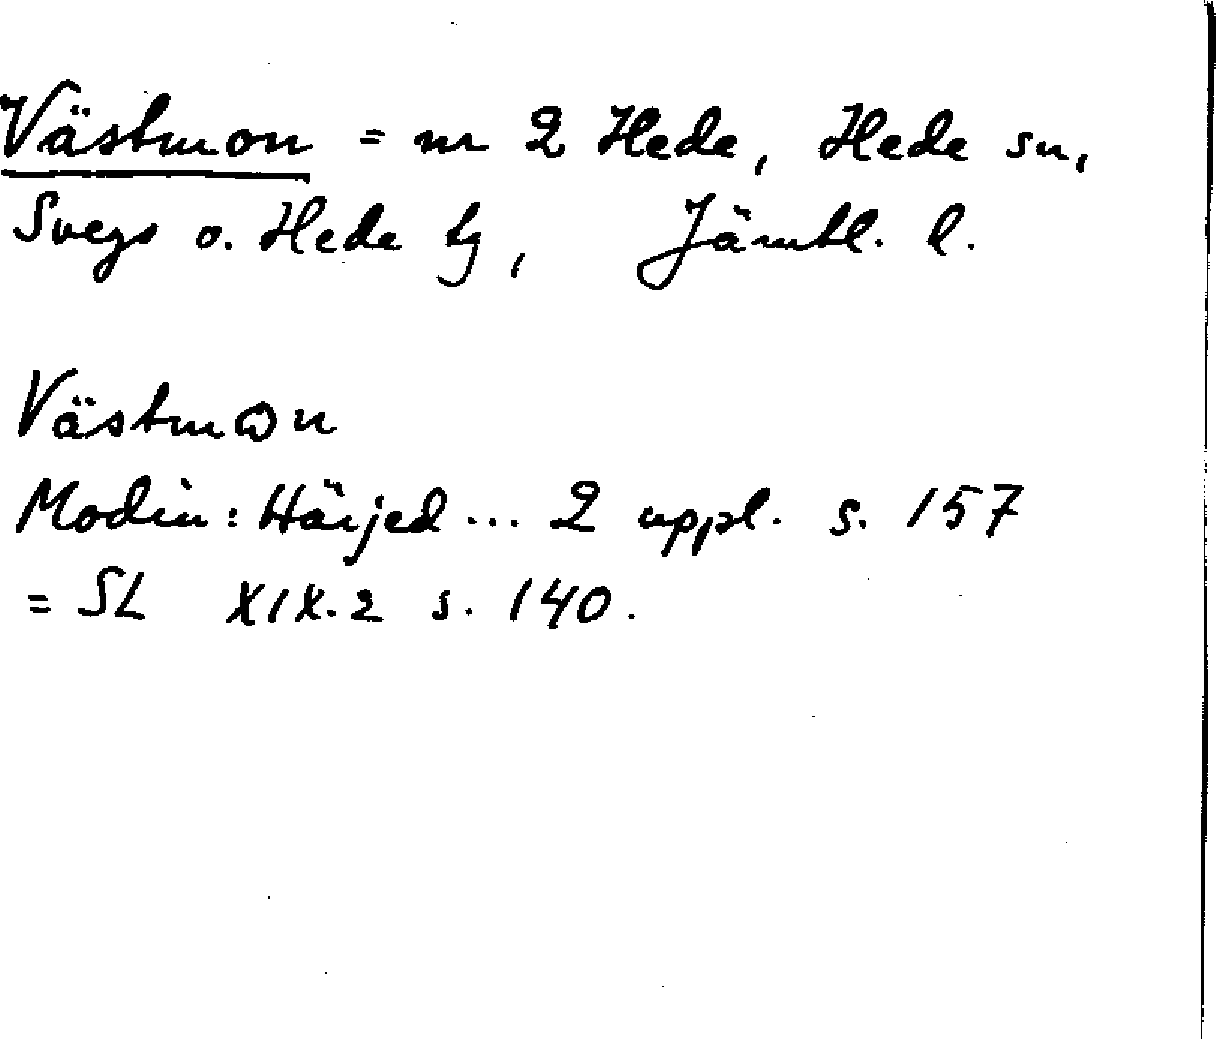 Västmon = nr 2 Hede, Hede sn,
Svegs o. Hede tg, Jämtl. l.
Västmon
Modin: Härjed... 2 uppl. s. 157
= SL XIX.2 s. 140.